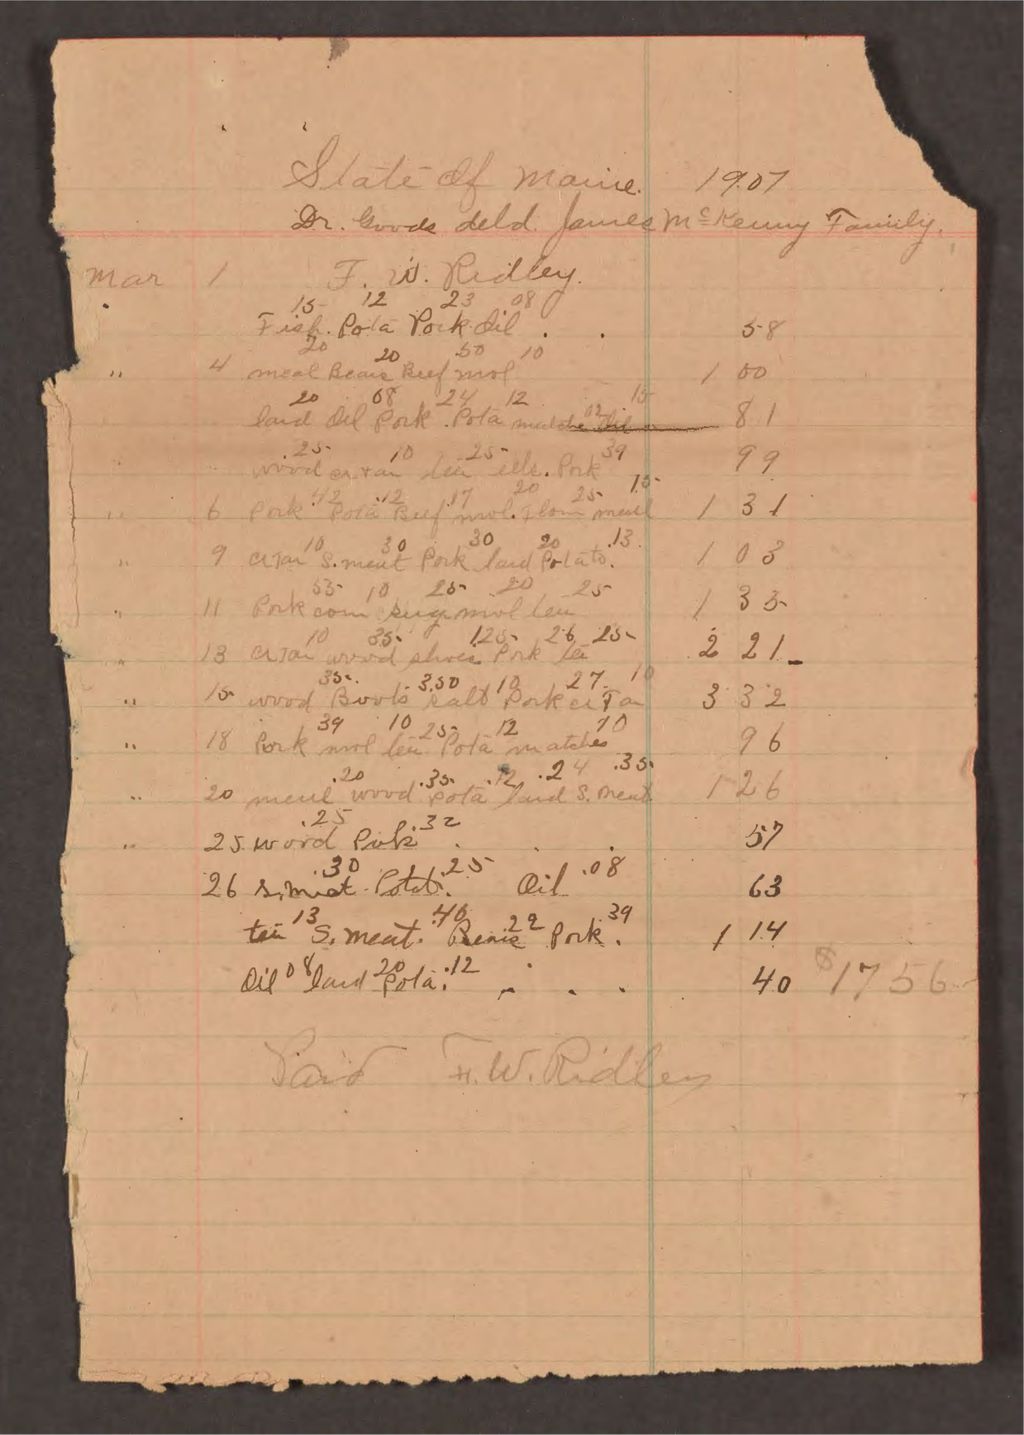 State of Maine. 1907
Dr. Goods deld. James McKenny Family.
Mar 1 F. W. Ridley.
15 12 23 .08
Fish. Pota Pork. Oil . . 58
20 20 50 10
" 4 meal Beans Beef mol 1 00
20 08 24 12 02 15
lard Oil Pork. Pota matche Oil 81
.25 10 25 39
" wood tea Pork 99
.42 .12 .17 20 25 15
" 6 Pork Pota Beef mol. Flour meal 1 31
10 30 30 20 .13
" 9 S. meat Pork lard Potato. 1 03
55 10 25 20 25
" 11 Pork corn sug. mol tea 1 35
10 35 1.25 26 25
" 13 wood shoes Pork tea 2 21
35 3.50 10 27 10
" 15 wood Boots salt Pork 3 32
39 10 25 12 10
" 18 Pork mol tea Pota matches 96
.20 .35 .12 .24 .35
" 20 meal wood Pota lard S. meat 1 26
.25 .32
" 25 wood Pork . . 57
.30 .25 .08
26 S. meat Potat. Oil 63
13 .40 .22 39
tea S. meat. Beans Pork. 1 14
08 20 .12
Oil lard Pota. . . . 40 $17 56
Paid F. W. Ridley